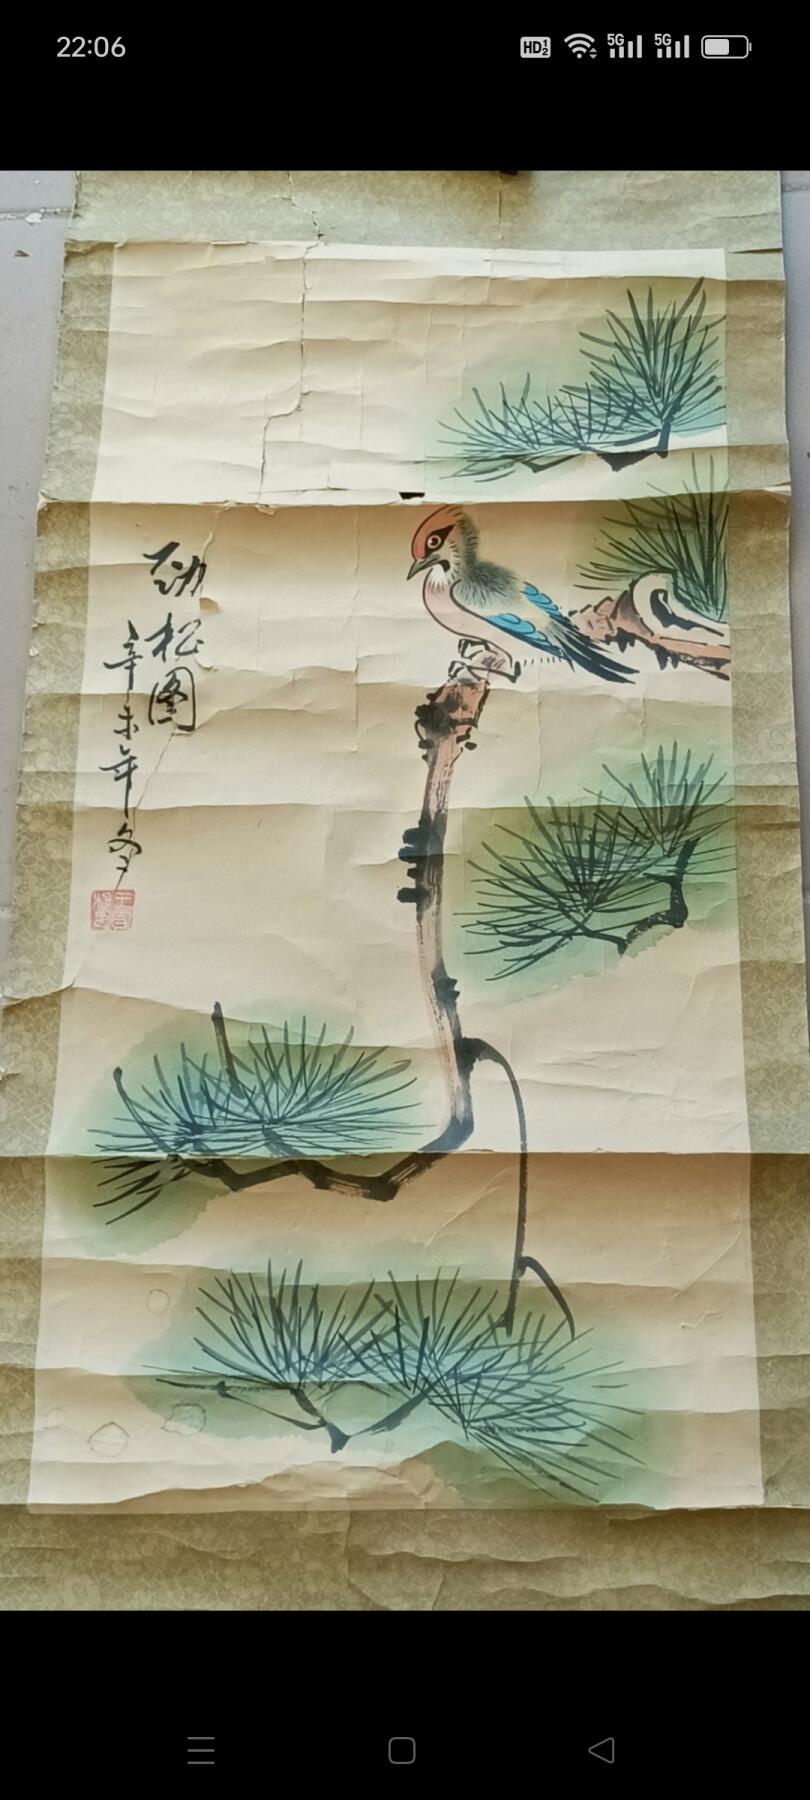 22:06
HD 1 2
5G
5G
劲松图
辛未年冬